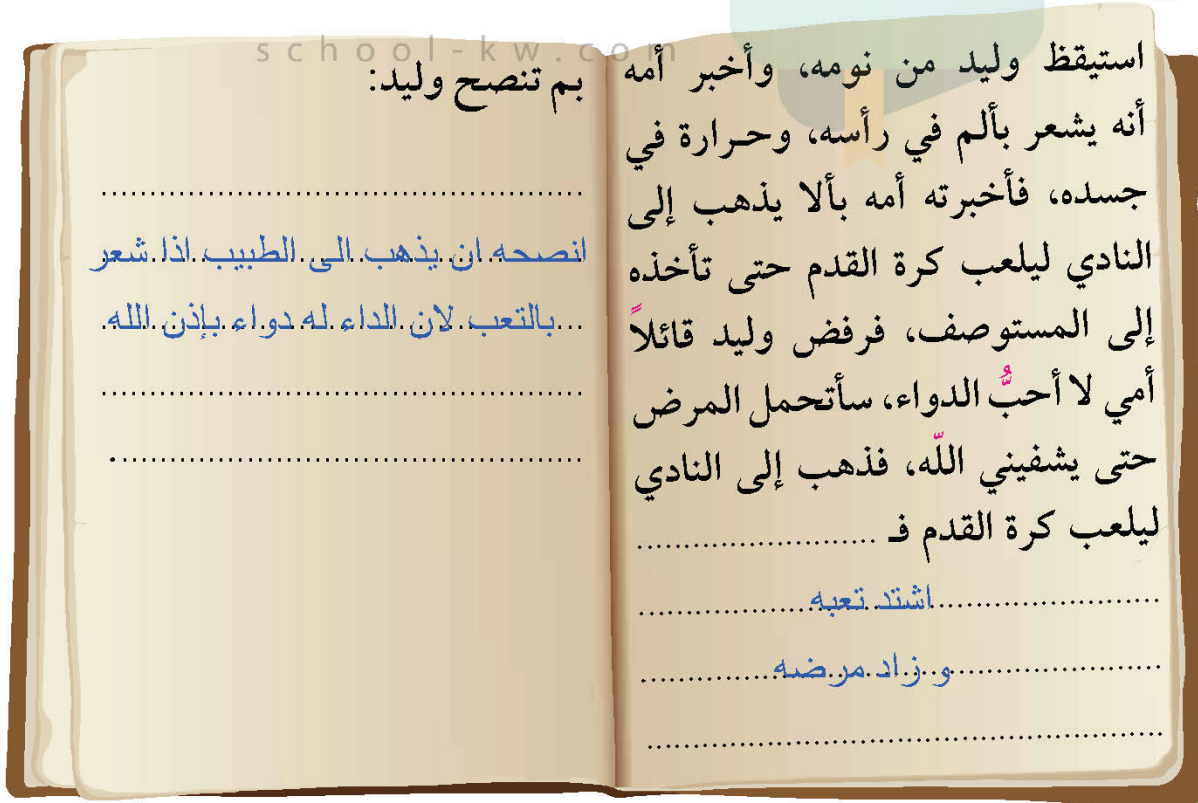 school-kw.com
استيقظ وليد من نومه، وأخبر أمه
أنه يشعر بألم في رأسه، وحرارة في
جسده، فأخبرته أمه بألا يذهب إلى
النادي ليلعب كرة القدم حتى تأخذه
إلى المستوصف، فرفض وليد قائلاً
أمي لا أحبُّ الدواء، سأتحمل المرض
حتى يشفيني اللّه، فذهب إلى النادي
ليلعب كرة القدم فـ ........................
اشتد تعبه
و زاد مرضه
بم تنصح وليد:
انصحه ان يذهب الى الطبيب اذا شعر
بالتعب لان الداء له دواء بإذن الله